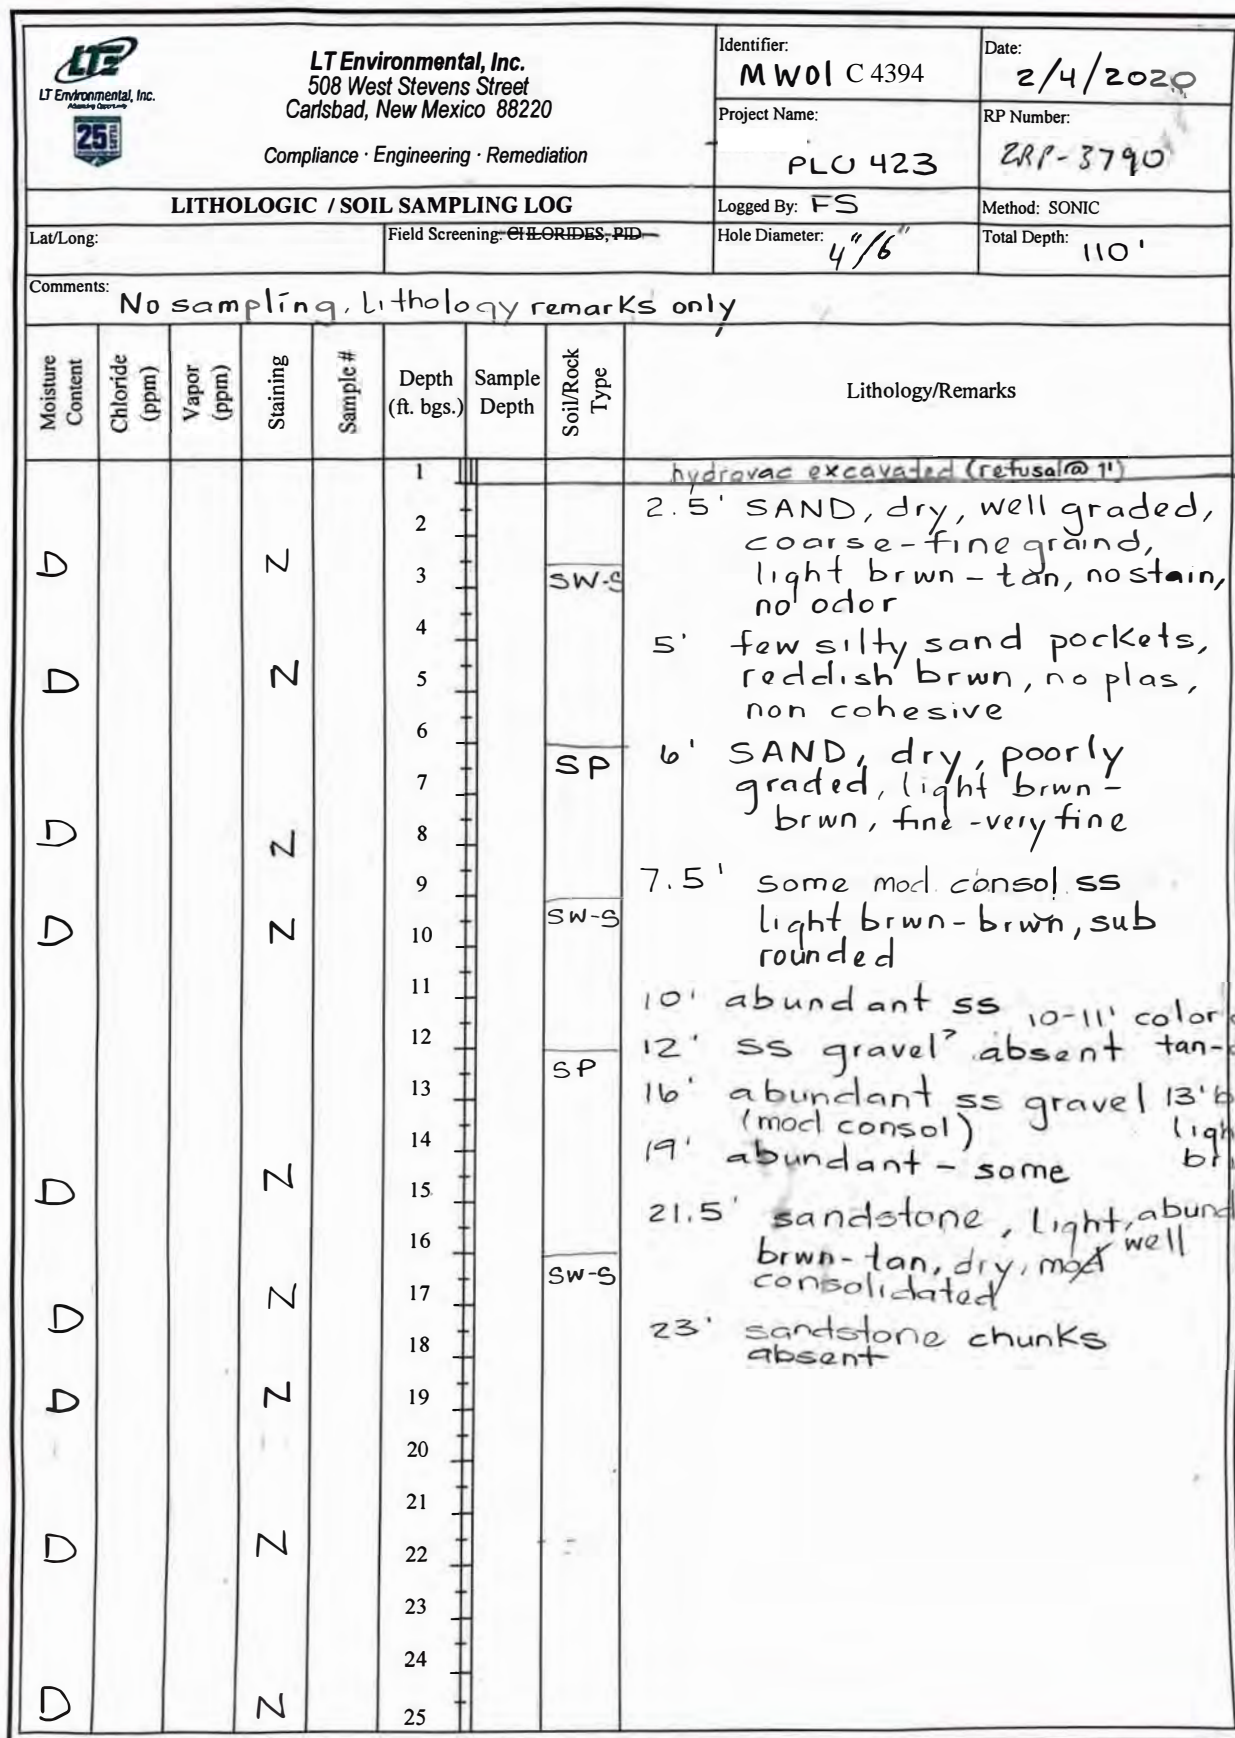 LTE
LT Environmental, Inc.
25
LT Environmental, Inc.
508 West Stevens Street
Carlsbad, New Mexico 88220
Compliance · Engineering · Remediation
Identifier:
MW01 C 4394
Date:
2/4/2020
Project Name:
PLU 423
RP Number:
2RP-3790
LITHOLOGIC / SOIL SAMPLING LOG
Logged By: FS
Method: SONIC
Lat/Long:
Field Screening: CHLORIDES, PID
Hole Diameter: 4"/6"
Total Depth: 110'
Comments: No sampling, Lithology remarks only
Moisture Content
Chloride (ppm)
Vapor (ppm)
Staining
Sample #
Depth (ft. bgs.)
Sample Depth
Soil/Rock Type
Lithology/Remarks
1 hydrovac excavated (refusal @ 1')
2
D N 3 SW-S
4
D N 5
6
7 SP
D N 8
9
D N 10 SW-S
11
12
13 SP
14
D N 15
16
D N 17 SW-S
18
D N 19
20
21
D N 22
23
24
D N 25
2.5' SAND, dry, well graded,
coarse-fine graind,
light brwn - tan, no stain,
no odor
5' few silty sand pockets,
reddish brwn, no plas,
non cohesive
6' SAND, dry, poorly
graded, light brwn -
brwn, fine -very fine
7.5' some mod. consol ss
light brwn - brwn, sub
rounded
10' abundant ss 10-11' color
12' ss gravel absent tan-
16' abundant ss gravel 13'
(mod consol)
19' abundant - some
21.5' sandstone, Light, abund
brwn-tan, dry, mod well
consolidated
23' sandstone chunks
absent